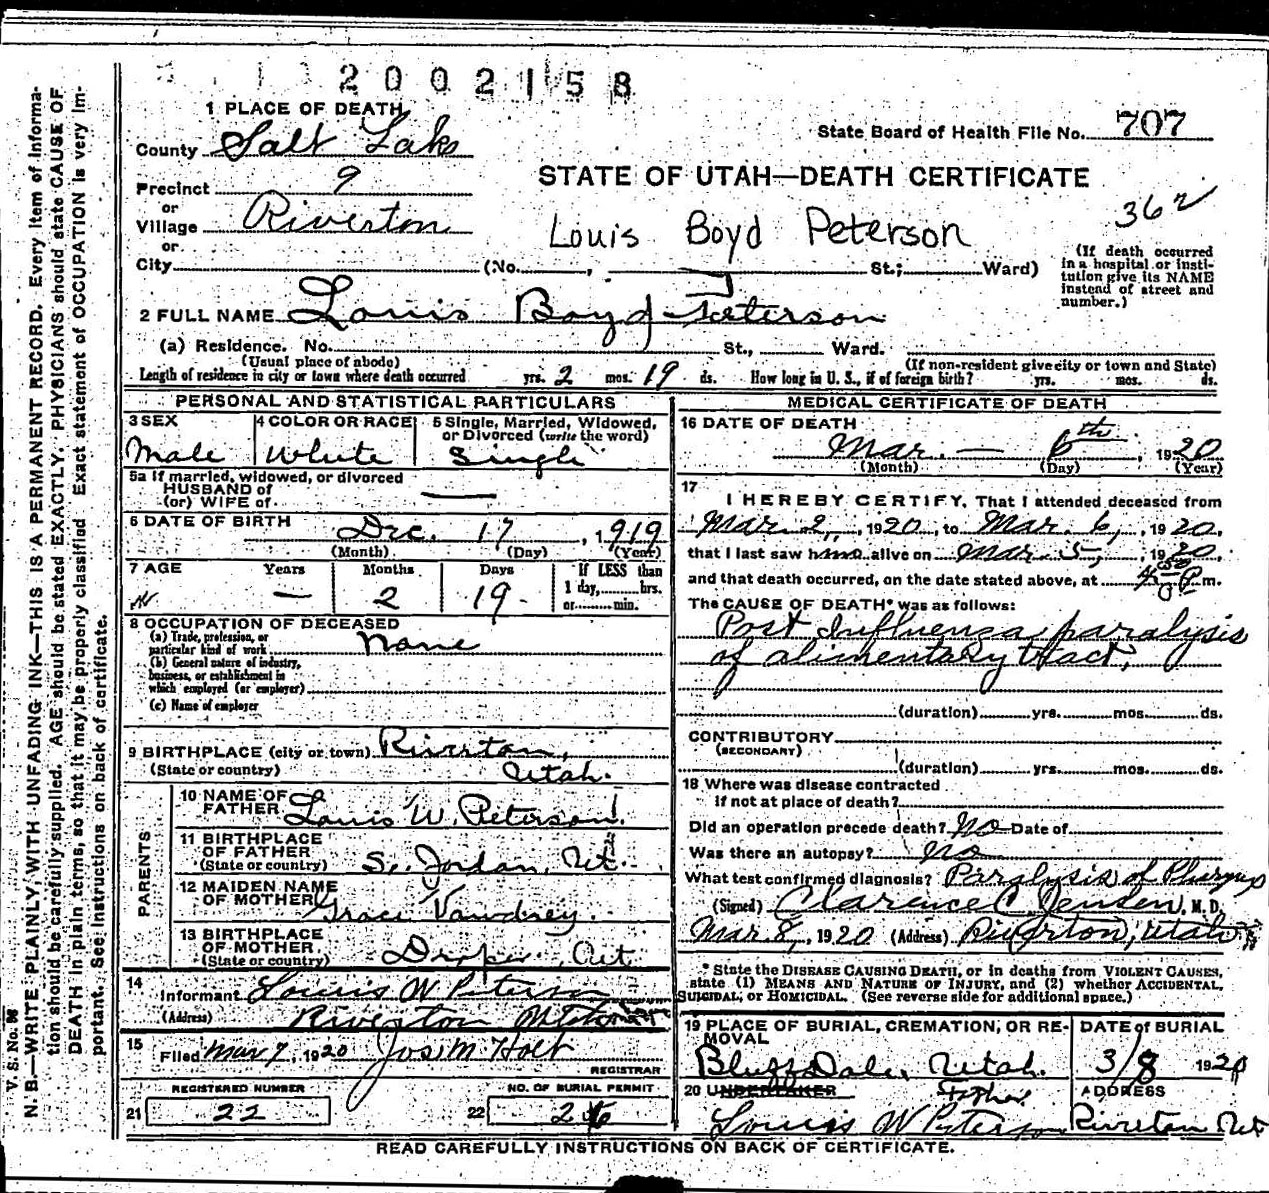 2002158
1 PLACE OF DEATH
State Board of Health File No. 707
County Salt Lake
STATE OF UTAH—DEATH CERTIFICATE
Precinct 9
362
or
Village Riverton
Louis Boyd Peterson
or
City (No. , St.; Ward)
(If death occurred in a hospital or insti-
tution give its NAME
instead of street and
number.)
2 FULL NAME Louis Boyd Peterson
(a) Residence. No. St., Ward.
(Usual place of abode) (If non-resident give city or town and State)
Length of residence in city or town where death occurred yrs. 2 mos. 19 ds. How long in U. S., if of foreign birth? yrs. mos. ds.
PERSONAL AND STATISTICAL PARTICULARS
3 SEX
Male
4 COLOR OR RACE
White
5 Single, Married, Widowed,
or Divorced (write the word)
Single
5a If married, widowed, or divorced
HUSBAND of
(or) WIFE of —
6 DATE OF BIRTH
Dec. 17, 1919
(Month) (Day) (Year)
7 AGE Years Months Days If LESS than
— 2 19 1 day, hrs.
or min.
8 OCCUPATION OF DECEASED
(a) Trade, profession, or
particular kind of work None
(b) General nature of industry,
business, or establishment in
which employed (or employer)
(c) Name of employer
9 BIRTHPLACE (city or town) Riverton,
(State or country) Utah.
PARENTS
10 NAME OF
FATHER Louis W. Peterson
11 BIRTHPLACE
OF FATHER
(State or country) So. Jordan, Ut.
12 MAIDEN NAME
OF MOTHER Grace Vawdrey.
13 BIRTHPLACE
OF MOTHER
(State or country) Draper, Ut.
14
Informant Louis W Peterson
(Address) Riverton
15
Filed Mar 7, 1920 Jos. M. Holt
REGISTRAR
REGISTERED NUMBER
21 22
NO. OF BURIAL PERMIT
22 26
MEDICAL CERTIFICATE OF DEATH
16 DATE OF DEATH
Mar. — 6th, 1920
(Month) (Day) (Year)
17
I HEREBY CERTIFY, That I attended deceased from
Mar 2, 1920, to Mar. 6, 1920,
that I last saw him alive on Mar. 5, 1920,
and that death occurred, on the date stated above, at P m.
The CAUSE OF DEATH* was as follows:
Post Influenza paralysis
of alimentary tract,
(duration) yrs. mos. ds.
CONTRIBUTORY
(SECONDARY)
(duration) yrs. mos. ds.
18 Where was disease contracted
if not at place of death?
Did an operation precede death? No Date of
Was there an autopsy? No
What test confirmed diagnosis? Paralysis of Pharynx
(Signed) Clarence C Jensen, M. D.
Mar 8, 1920 (Address) Riverton, Utah
* State the DISEASE CAUSING DEATH, or in deaths from VIOLENT CAUSES,
state (1) MEANS AND NATURE OF INJURY, and (2) whether ACCIDENTAL,
SUICIDAL, or HOMICIDAL. (See reverse side for additional space.)
19 PLACE OF BURIAL, CREMATION, OR RE-
MOVAL
Bluff Dale, Utah.
DATE of BURIAL
3/8 1920
20 UNDERTAKER Father
Louis W Peterson
ADDRESS
Riverton Ut
READ CAREFULLY INSTRUCTIONS ON BACK OF CERTIFICATE.
V. S. No.
N. B.—WRITE PLAINLY, WITH UNFADING INK—THIS IS A PERMANENT RECORD. Every item of informa-
tion should be carefully supplied. AGE should be stated EXACTLY. PHYSICIANS should state CAUSE OF
DEATH in plain terms, so that it may be properly classified. Exact statement of OCCUPATION is very im-
portant. See instructions on back of certificate.